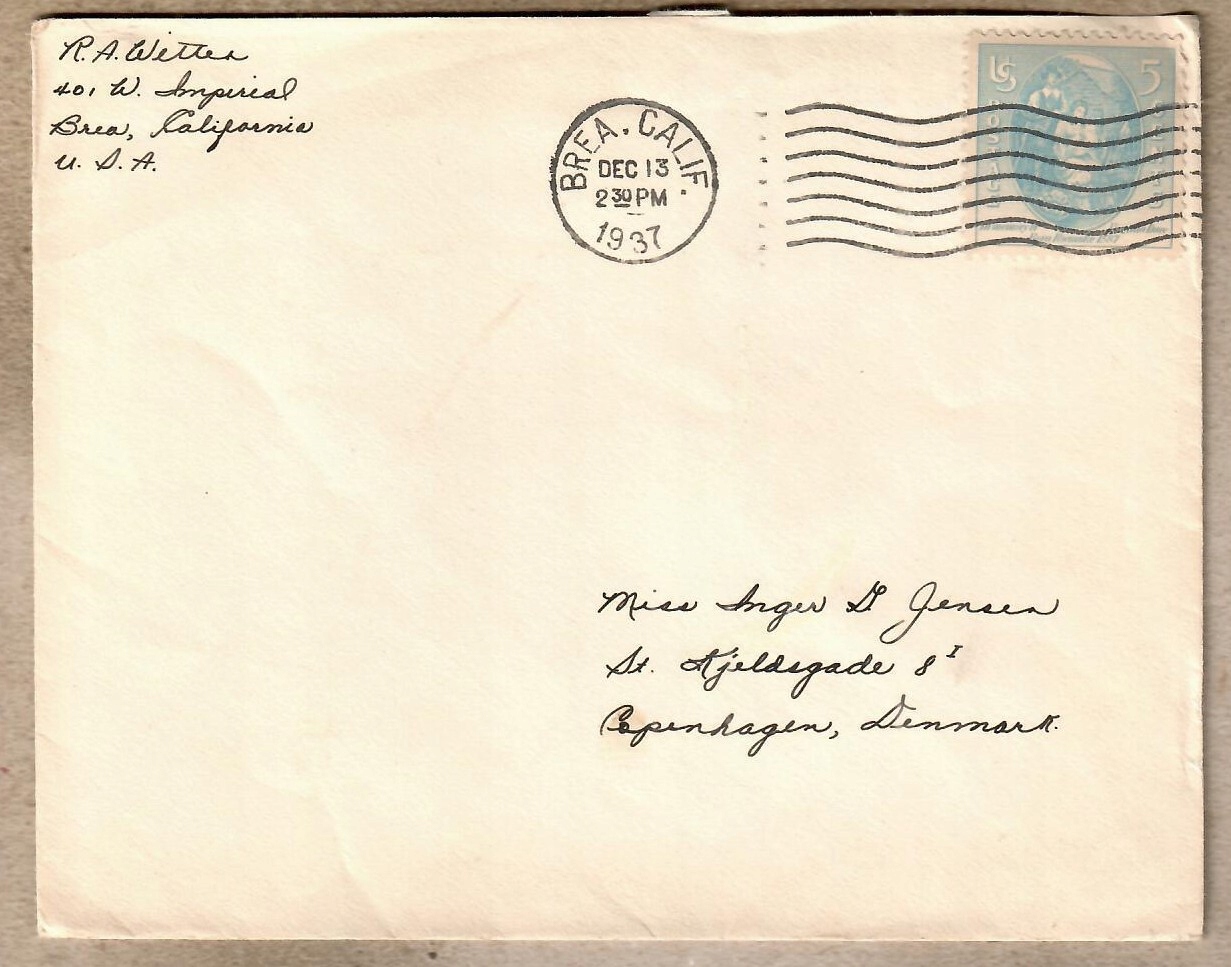 R. A. Witter
401 W. Imperial
Brea, California
U. S. A.
BREA, CALIF.
DEC 13
2 30 PM
1937
US 5
Miss Inger D Jensen
St. Kjeldsgade 8 I
Copenhagen, Denmark.